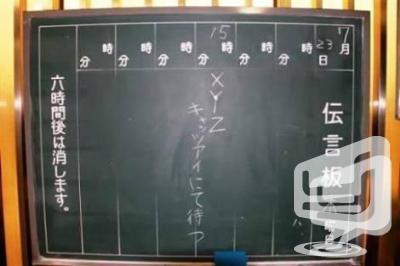 7月23日
伝言板
時 分
時 分
15時 分
時 分
時 分
時 分
XYZ
キャッツアイにて待つ
六時間後は消します。